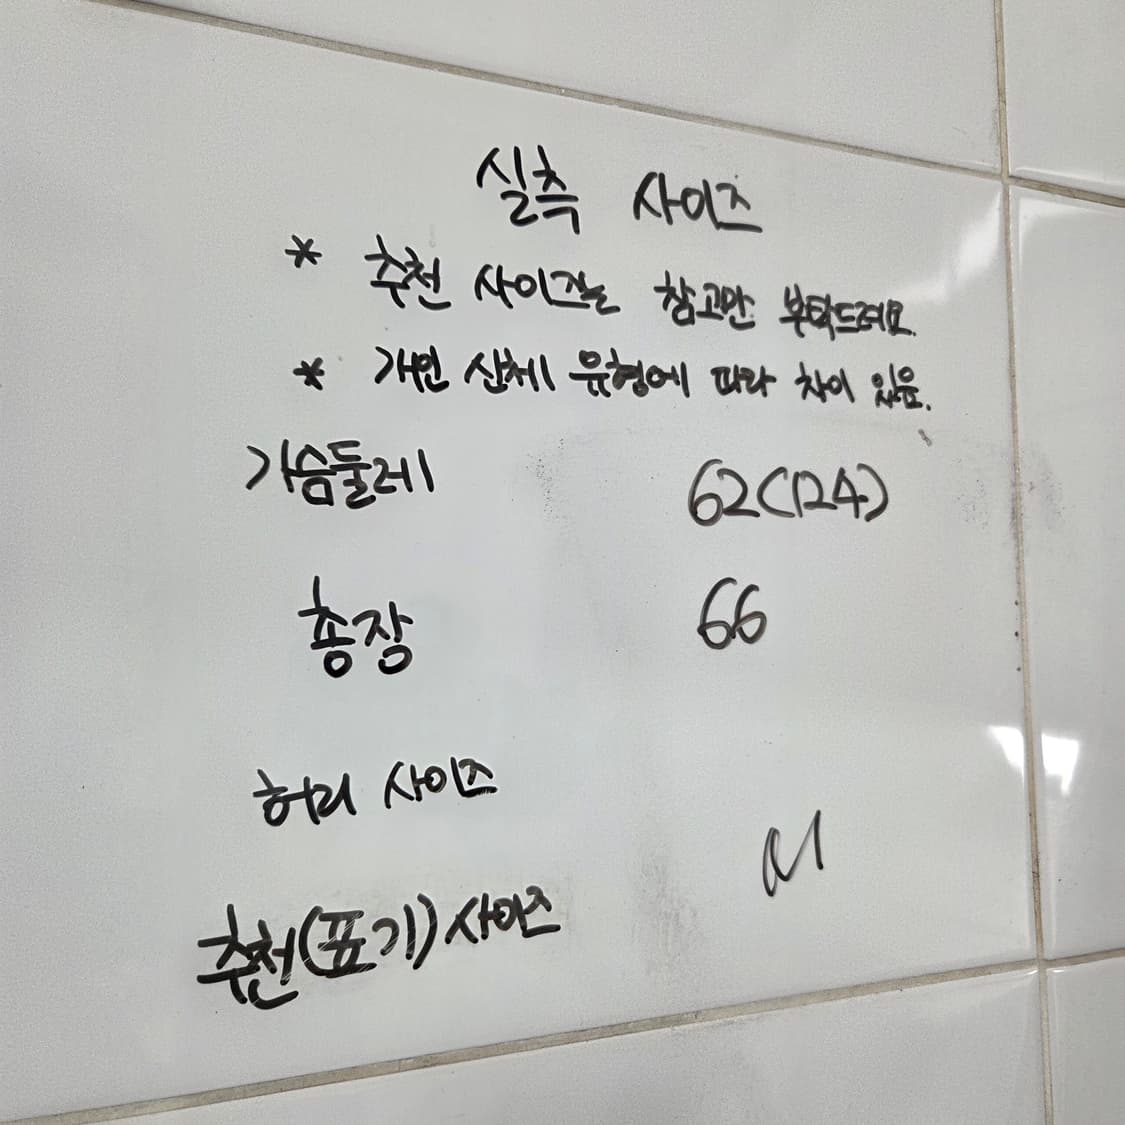 실측 사이즈
* 추천 사이즈는 참고만 부탁드려요.
* 개인 신체 유형에 따라 차이 있음.
가슴둘레 62(124)
총장 66
허리 사이즈
추천(표기) 사이즈 M